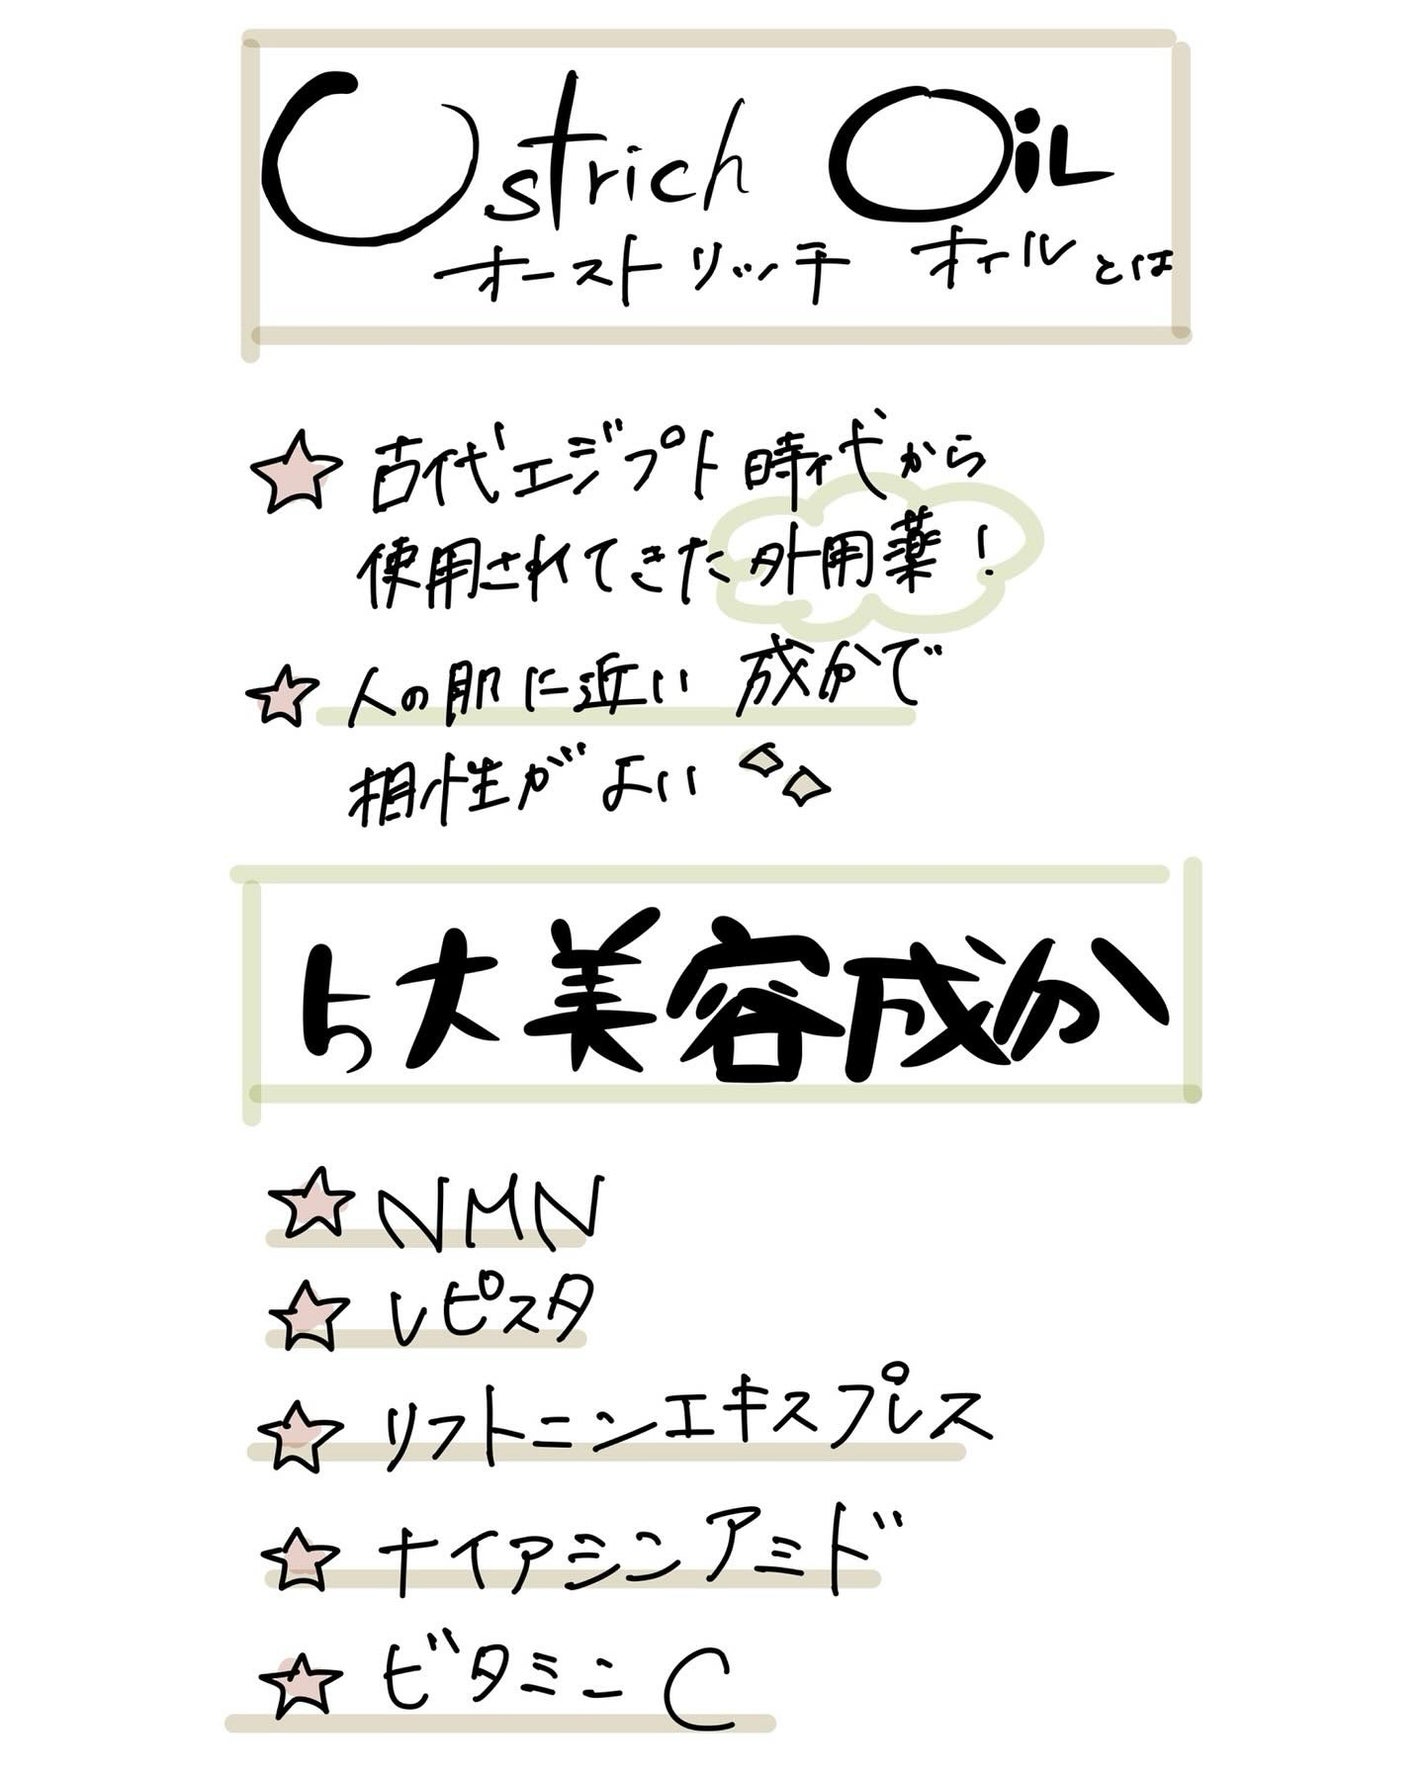 Ostrich Oil
オーストリッチ オイルとは
古代エジプト時代から
使用されてきた外用薬！
人の肌に近い 成分で
相性がよい
5大美容成分
NMN
レピスタ
リフトニンエキスプレス
ナイアシンアミド
ビタミンC